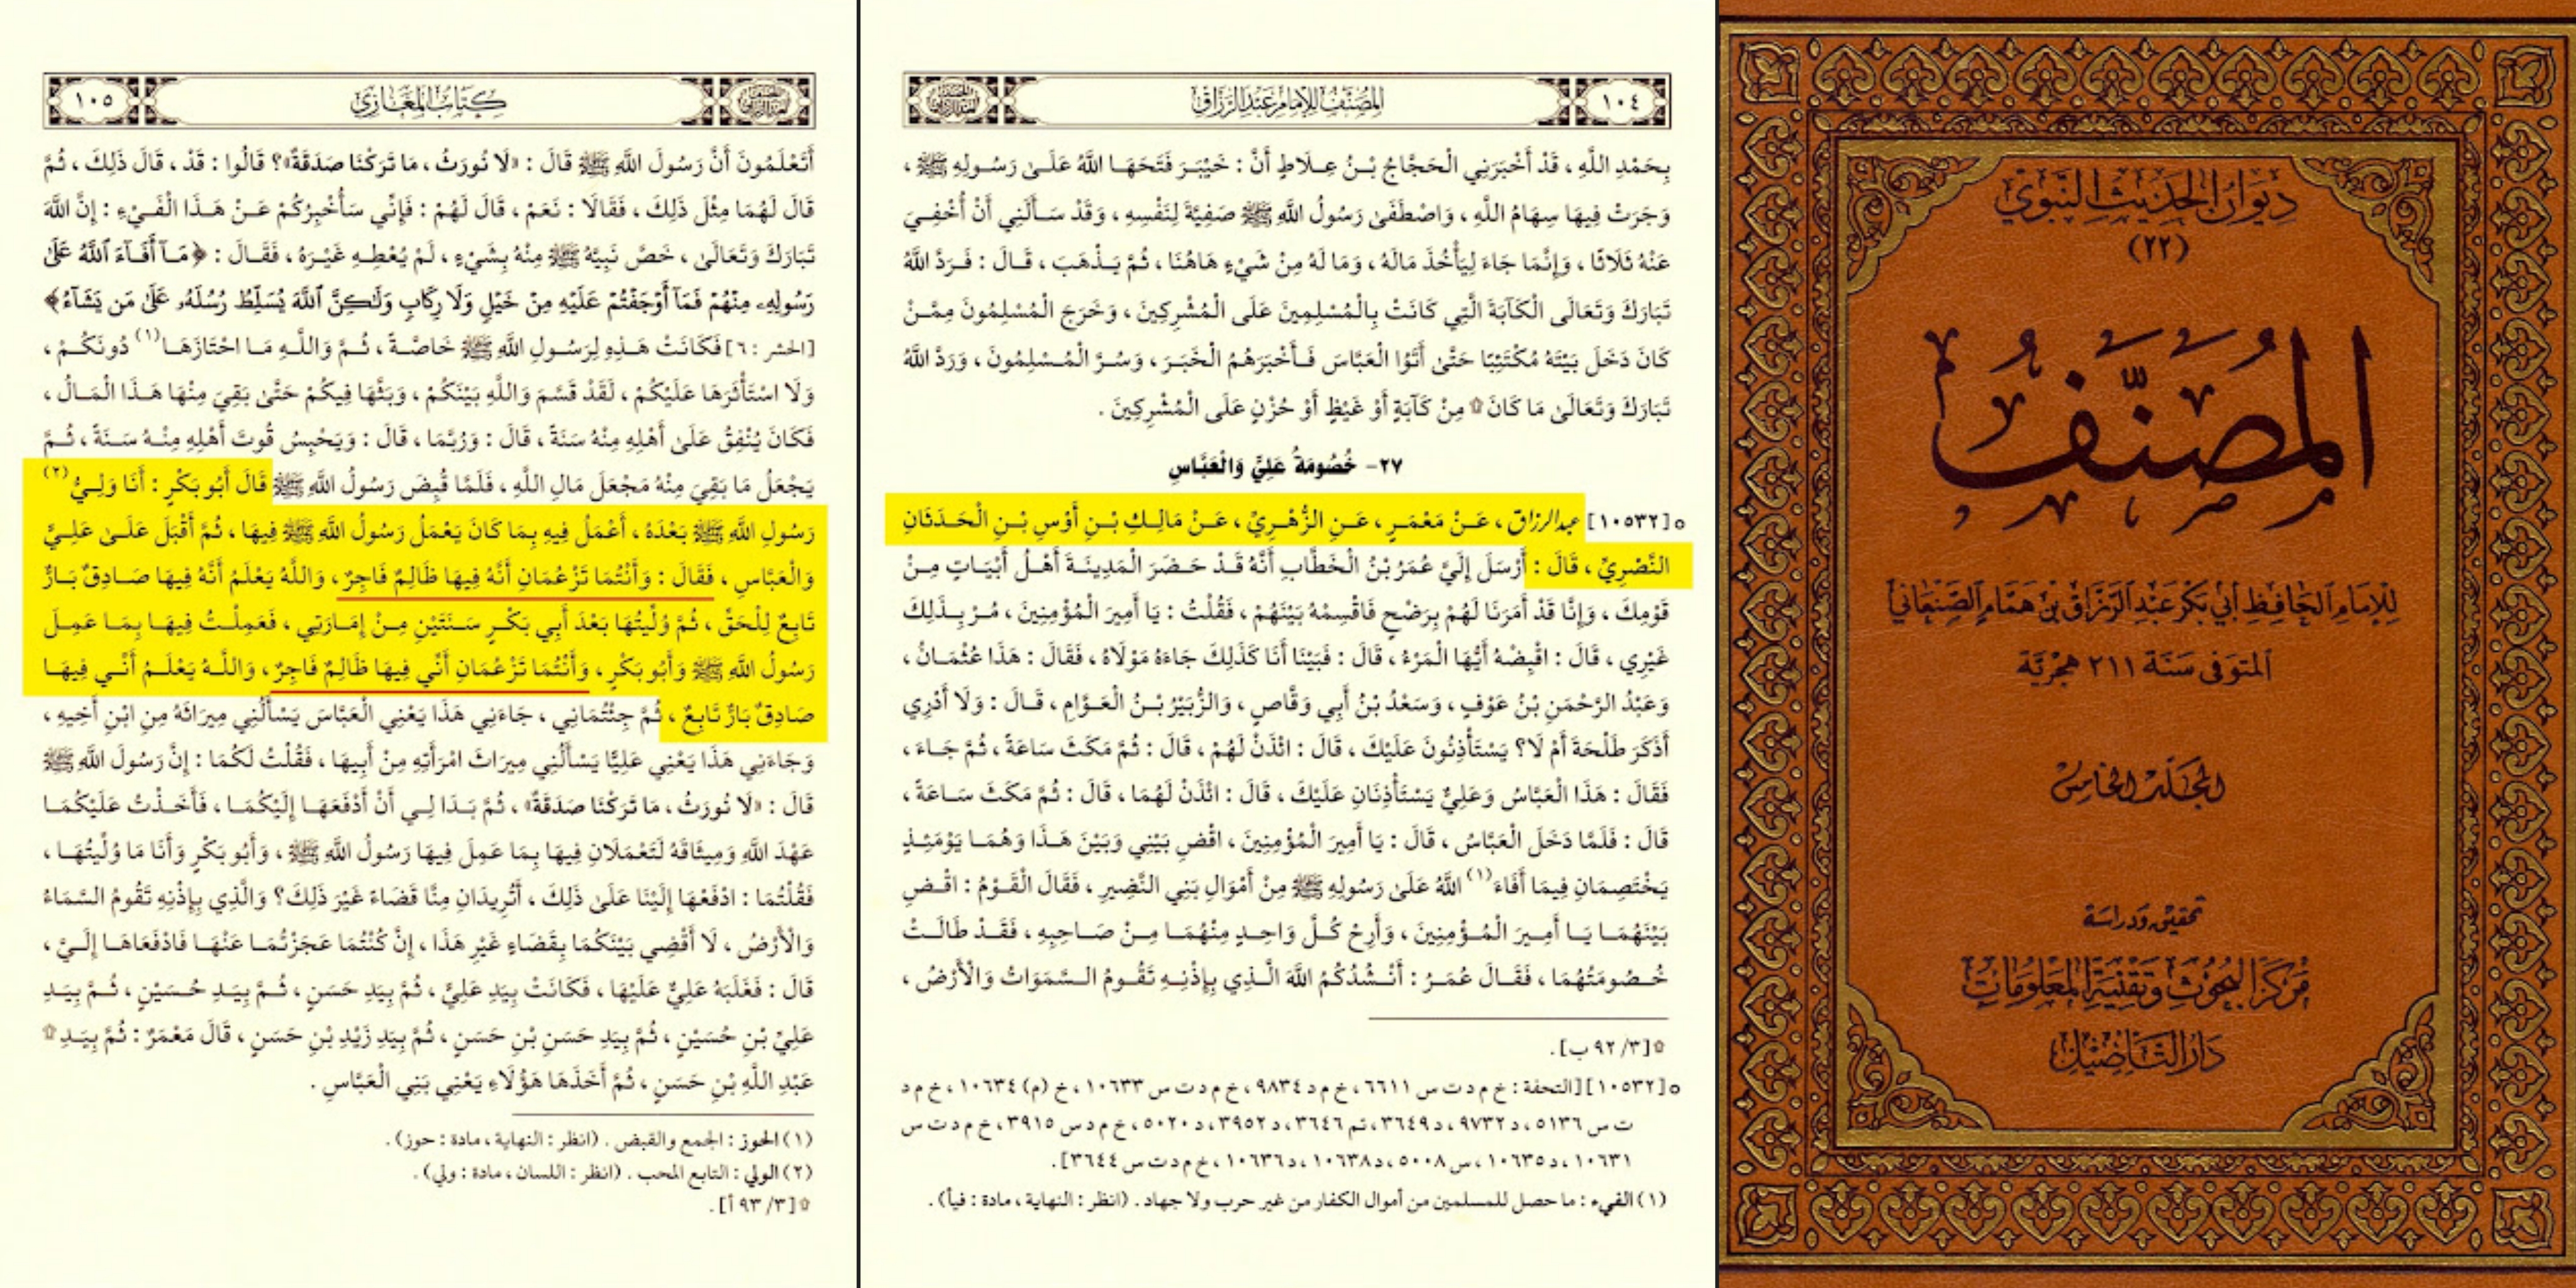 ديوان الحديث النبوي
(٢٢)
المُصَنَّفُ
لِلإِمَامِ الحَافِظِ أَبِي بَكْرٍ عَبْدِ الرَّزَّاقِ بْنِ هَمَّامٍ الصَّنْعَانِي
المتوفى سَنَة ٢١١ هِجْرِيَّة
المجَلّد الخَامِسْ
تحقيق ودراسة
مَركز البُحُوثِ وَتقنِيَة المَعْلُومَات
دَارُ التَّأصِيْل
١٠٤
المُصَنَّفُ لِلإِمَامِ عَبْدِ الرَّزَّاق
بِحَمْدِ اللَّهِ ، قَدْ أَخْبَرَنِي الْحَجَّاجُ بْنُ عِلَاطٍ أَنَّ : خَيْبَرَ فَتَحَهَا اللَّهُ عَلَىٰ رَسُولِهِ ﷺ ،
وَجَرَتْ فِيهَا سِهَامُ اللَّهِ ، وَاصْطَفَىٰ رَسُولُ اللَّهِ ﷺ صَفِيَّةَ لِنَفْسِهِ ، وَقَدْ سَأَلَنِي أَنْ أُخْفِيَ
عَنْهُ ثَلَاثًا ، وَإِنَّمَا جَاءَ لِيَأْخُذَ مَالَهُ ، وَمَا لَهُ مِنْ شَيْءٍ هَاهُنَا ، ثُمَّ يَذْهَبَ ، قَالَ : فَرَدَّ اللَّهُ
تَبَارَكَ وَتَعَالَى الْكَآبَةَ الَّتِي كَانَتْ بِالْمُسْلِمِينَ عَلَى الْمُشْرِكِينَ ، وَخَرَجَ الْمُسْلِمُونَ مِمَّنْ
كَانَ دَخَلَ بَيْتَهُ مُكْتَئِبًا حَتَّىٰ أَتَوُا الْعَبَّاسَ فَأَخْبَرَهُمُ الْخَبَرَ ، وَسُرَّ الْمُسْلِمُونَ ، وَرَدَّ اللَّهُ
تَبَارَكَ وَتَعَالَىٰ مَا كَانَ ۩ مِنْ كَآبَةٍ أَوْ غَيْظٍ أَوْ حُزْنٍ عَلَى الْمُشْرِكِينَ .
٢٧- خُصُومَةُ عَلِيٍّ وَالْعَبَّاسِ
٥ [١٠٥٣٢] عبد الرزاق ، عَنْ مَعْمَرٍ ، عَنِ الزُّهْرِيِّ ، عَنْ مَالِكِ بْنِ أَوْسِ بْنِ الْحَدَثَانِ
النَّصْرِيِّ ، قَالَ : أَرْسَلَ إِلَيَّ عُمَرُ بْنُ الْخَطَّابِ أَنَّهُ قَدْ حَضَرَ الْمَدِينَةَ أَهْلُ أَبْيَاتٍ مِنْ
قَوْمِكَ ، وَإِنَّا قَدْ أَمَرْنَا لَهُمْ بِرَضْخٍ فَاقْسِمْهُ بَيْنَهُمْ ، فَقُلْتُ : يَا أَمِيرَ الْمُؤْمِنِينَ ، مُرْ بِذَلِكَ
غَيْرِي ، قَالَ : اقْبِضْهُ أَيُّهَا الْمَرْءُ ، قَالَ : فَبَيْنَا أَنَا كَذَلِكَ جَاءَهُ مَوْلَاهُ ، فَقَالَ : هَذَا عُثْمَانُ ،
وَعَبْدُ الرَّحْمَنِ بْنُ عَوْفٍ ، وَسَعْدُ بْنُ أَبِي وَقَّاصٍ ، وَالزُّبَيْرُ بْنُ الْعَوَّامِ ، قَالَ : وَلَا أَدْرِي
أَذَكَرَ طَلْحَةَ أَمْ لَا؟ يَسْتَأْذِنُونَ عَلَيْكَ ، قَالَ : ائْذَنْ لَهُمْ ، قَالَ : ثُمَّ مَكَثَ سَاعَةً ، ثُمَّ جَاءَ ،
فَقَالَ : هَذَا الْعَبَّاسُ وَعَلِيٌّ يَسْتَأْذِنَانِ عَلَيْكَ ، قَالَ : ائْذَنْ لَهُمَا ، قَالَ : ثُمَّ مَكَثَ سَاعَةً ،
قَالَ : فَلَمَّا دَخَلَ الْعَبَّاسُ ، قَالَ : يَا أَمِيرَ الْمُؤْمِنِينَ ، اقْضِ بَيْنِي وَبَيْنَ هَذَا وَهُمَا يَوْمَئِذٍ
يَخْتَصِمَانِ فِيمَا أَفَاءَ (١) اللَّهُ عَلَىٰ رَسُولِهِ ﷺ مِنْ أَمْوَالِ بَنِي النَّضِيرِ ، فَقَالَ الْقَوْمُ : اقْضِ
بَيْنَهُمَا يَا أَمِيرَ الْمُؤْمِنِينَ ، وَأَرِحْ كُلَّ وَاحِدٍ مِنْهُمَا مِنْ صَاحِبِهِ ، فَقَدْ طَالَتْ
خُصُومَتُهُمَا ، فَقَالَ عُمَرُ : أَنْشُدُكُمُ اللَّهَ الَّذِي بِإِذْنِهِ تَقُومُ السَّمَوَاتُ وَالْأَرْضُ ،
۩ [٣/ ٩٢ ب] .
٥ [١٠٥٣٢] [التحفة : خ م د ت س ٦٦١١ ، خ م د ٩٨٣٤ ، خ م د ت س ١٠٦٣٣ ، خ (م) ١٠٦٣٤ ، خ م د
ت س ٥١٣٦ ، د ٩٧٣٢ ، د ٣٦٤٩ ، تم ٣٦٤٦ ، د ٣٩٥٢ ، د ٥٠٢٠ ، خ م د س ٣٩١٥ ، خ م د ت س
١٠٦٣١ ، د ١٠٦٣٥ ، س ٥٠٠٨ ، د ١٠٦٣٨ ، د ١٠٦٣٦ ، خ م د ت س ٣٦٤٤] .
(١) الفيء : ما حصل للمسلمين من أموال الكفار من غير حرب ولا جهاد . (انظر : النهاية ، مادة : فيأ) .
كِتَابُ المَغَازِي
١٠٥
أَتَعْلَمُونَ أَنَّ رَسُولَ اللَّهِ ﷺ قَالَ : «لَا نُورَثُ ، مَا تَرَكْنَا صَدَقَةٌ»؟ قَالُوا : قَدْ ، قَالَ ذَلِكَ ، ثُمَّ
قَالَ لَهُمَا مِثْلَ ذَلِكَ ، فَقَالَا : نَعَمْ ، قَالَ لَهُمْ : فَإِنِّي سَأُخْبِرُكُمْ عَنْ هَذَا الْفَيْءِ : إِنَّ اللَّهَ
تَبَارَكَ وَتَعَالَىٰ ، خَصَّ نَبِيَّهُ ﷺ مِنْهُ بِشَيْءٍ ، لَمْ يُعْطِهِ غَيْرَهُ ، فَقَالَ : ﴿مَآ أَفَآءَ ٱللَّهُ عَلَىٰ
رَسُولِهِۦ مِنْهُمْ فَمَآ أَوْجَفْتُمْ عَلَيْهِ مِنْ خَيْلٍ وَلَا رِكَابٍ وَلَٰكِنَّ ٱللَّهَ يُسَلِّطُ رُسُلَهُۥ عَلَىٰ مَن يَشَآءُ﴾
[الحشر : ٦] فَكَانَتْ هَذِهِ لِرَسُولِ اللَّهِ ﷺ خَاصَّةً ، ثُمَّ وَاللَّهِ مَا احْتَازَهَا (١) دُونَكُمْ ،
وَلَا اسْتَأْثَرَهَا عَلَيْكُمْ ، لَقَدْ قَسَّمَ وَاللَّهِ بَيْنَكُمْ ، وَبَثَّهَا فِيكُمْ حَتَّىٰ بَقِيَ مِنْهَا هَذَا الْمَالُ ،
فَكَانَ يُنْفِقُ عَلَىٰ أَهْلِهِ مِنْهُ سَنَةً ، قَالَ : وَرُبَّمَا ، قَالَ : وَيَحْبِسُ قُوتَ أَهْلِهِ مِنْهُ سَنَةً ، ثُمَّ
يَجْعَلُ مَا بَقِيَ مِنْهُ مَجْعَلَ مَالِ اللَّهِ ، فَلَمَّا قُبِضَ رَسُولُ اللَّهِ ﷺ قَالَ أَبُو بَكْرٍ : أَنَا وَلِيُّ (٢)
رَسُولِ اللَّهِ ﷺ بَعْدَهُ ، أَعْمَلُ فِيهِ بِمَا كَانَ يَعْمَلُ رَسُولُ اللَّهِ ﷺ فِيهَا ، ثُمَّ أَقْبَلَ عَلَىٰ عَلِيٍّ
وَالْعَبَّاسِ ، فَقَالَ : وَأَنْتُمَا تَزْعُمَانِ أَنَّهُ فِيهَا ظَالِمٌ فَاجِرٌ ، وَاللَّهُ يَعْلَمُ أَنَّهُ فِيهَا صَادِقٌ بَارٌّ
تَابِعٌ لِلْحَقِّ ، ثُمَّ وُلِّيتُهَا بَعْدَ أَبِي بَكْرٍ سَنَتَيْنِ مِنْ إِمَارَتِي ، فَعَمِلْتُ فِيهَا بِمَا عَمِلَ
رَسُولُ اللَّهِ ﷺ وَأَبُو بَكْرٍ ، وَأَنْتُمَا تَزْعُمَانِ أَنِّي فِيهَا ظَالِمٌ فَاجِرٌ ، وَاللَّهُ يَعْلَمُ أَنِّي فِيهَا
صَادِقٌ بَارٌّ تَابِعٌ ، ثُمَّ جِئْتُمَانِي ، جَاءَنِي هَذَا يَعْنِي الْعَبَّاسَ يَسْأَلُنِي مِيرَاثَهُ مِنِ ابْنِ أَخِيهِ ،
وَجَاءَنِي هَذَا يَعْنِي عَلِيًّا يَسْأَلُنِي مِيرَاثَ امْرَأَتِهِ مِنْ أَبِيهَا ، فَقُلْتُ لَكُمَا : إِنَّ رَسُولَ اللَّهِ ﷺ
قَالَ : «لَا نُورَثُ ، مَا تَرَكْنَا صَدَقَةٌ» ، ثُمَّ بَدَا لِي أَنْ أَدْفَعَهَا إِلَيْكُمَا ، فَأَخَذْتُ عَلَيْكُمَا
عَهْدَ اللَّهِ وَمِيثَاقَهُ لَتَعْمَلَانِ فِيهَا بِمَا عَمِلَ فِيهَا رَسُولُ اللَّهِ ﷺ ، وَأَبُو بَكْرٍ وَأَنَا مَا وُلِّيتُهَا ،
فَقُلْتُمَا : ادْفَعْهَا إِلَيْنَا عَلَىٰ ذَلِكَ ، أَتُرِيدَانِ مِنَّا قَضَاءً غَيْرَ ذَلِكَ؟ وَالَّذِي بِإِذْنِهِ تَقُومُ السَّمَاءُ
وَالْأَرْضُ ، لَا أَقْضِي بَيْنَكُمَا بِقَضَاءٍ غَيْرِ هَذَا ، إِنْ كُنْتُمَا عَجَزْتُمَا عَنْهَا فَادْفَعَاهَا إِلَيَّ ،
قَالَ : فَغَلَبَهُ عَلِيٌّ عَلَيْهَا ، فَكَانَتْ بِيَدِ عَلِيٍّ ، ثُمَّ بِيَدِ حَسَنٍ ، ثُمَّ بِيَدِ حُسَيْنٍ ، ثُمَّ بِيَدِ
عَلِيِّ بْنِ حُسَيْنٍ ، ثُمَّ بِيَدِ حَسَنِ بْنِ حَسَنٍ ، ثُمَّ بِيَدِ زَيْدِ بْنِ حَسَنٍ ، قَالَ مَعْمَرٌ : ثُمَّ بِيَدِ ۩
عَبْدِ اللَّهِ بْنِ حَسَنٍ ، ثُمَّ أَخَذَهَا هَؤُلَاءِ يَعْنِي بَنِي الْعَبَّاسِ .
(١) الحوز : الجمع والقبض . (انظر : النهاية ، مادة : حوز) .
(٢) الولي : التابع المحب . (انظر : اللسان ، مادة : ولي) .
۩ [٣/ ٩٣ أ] .